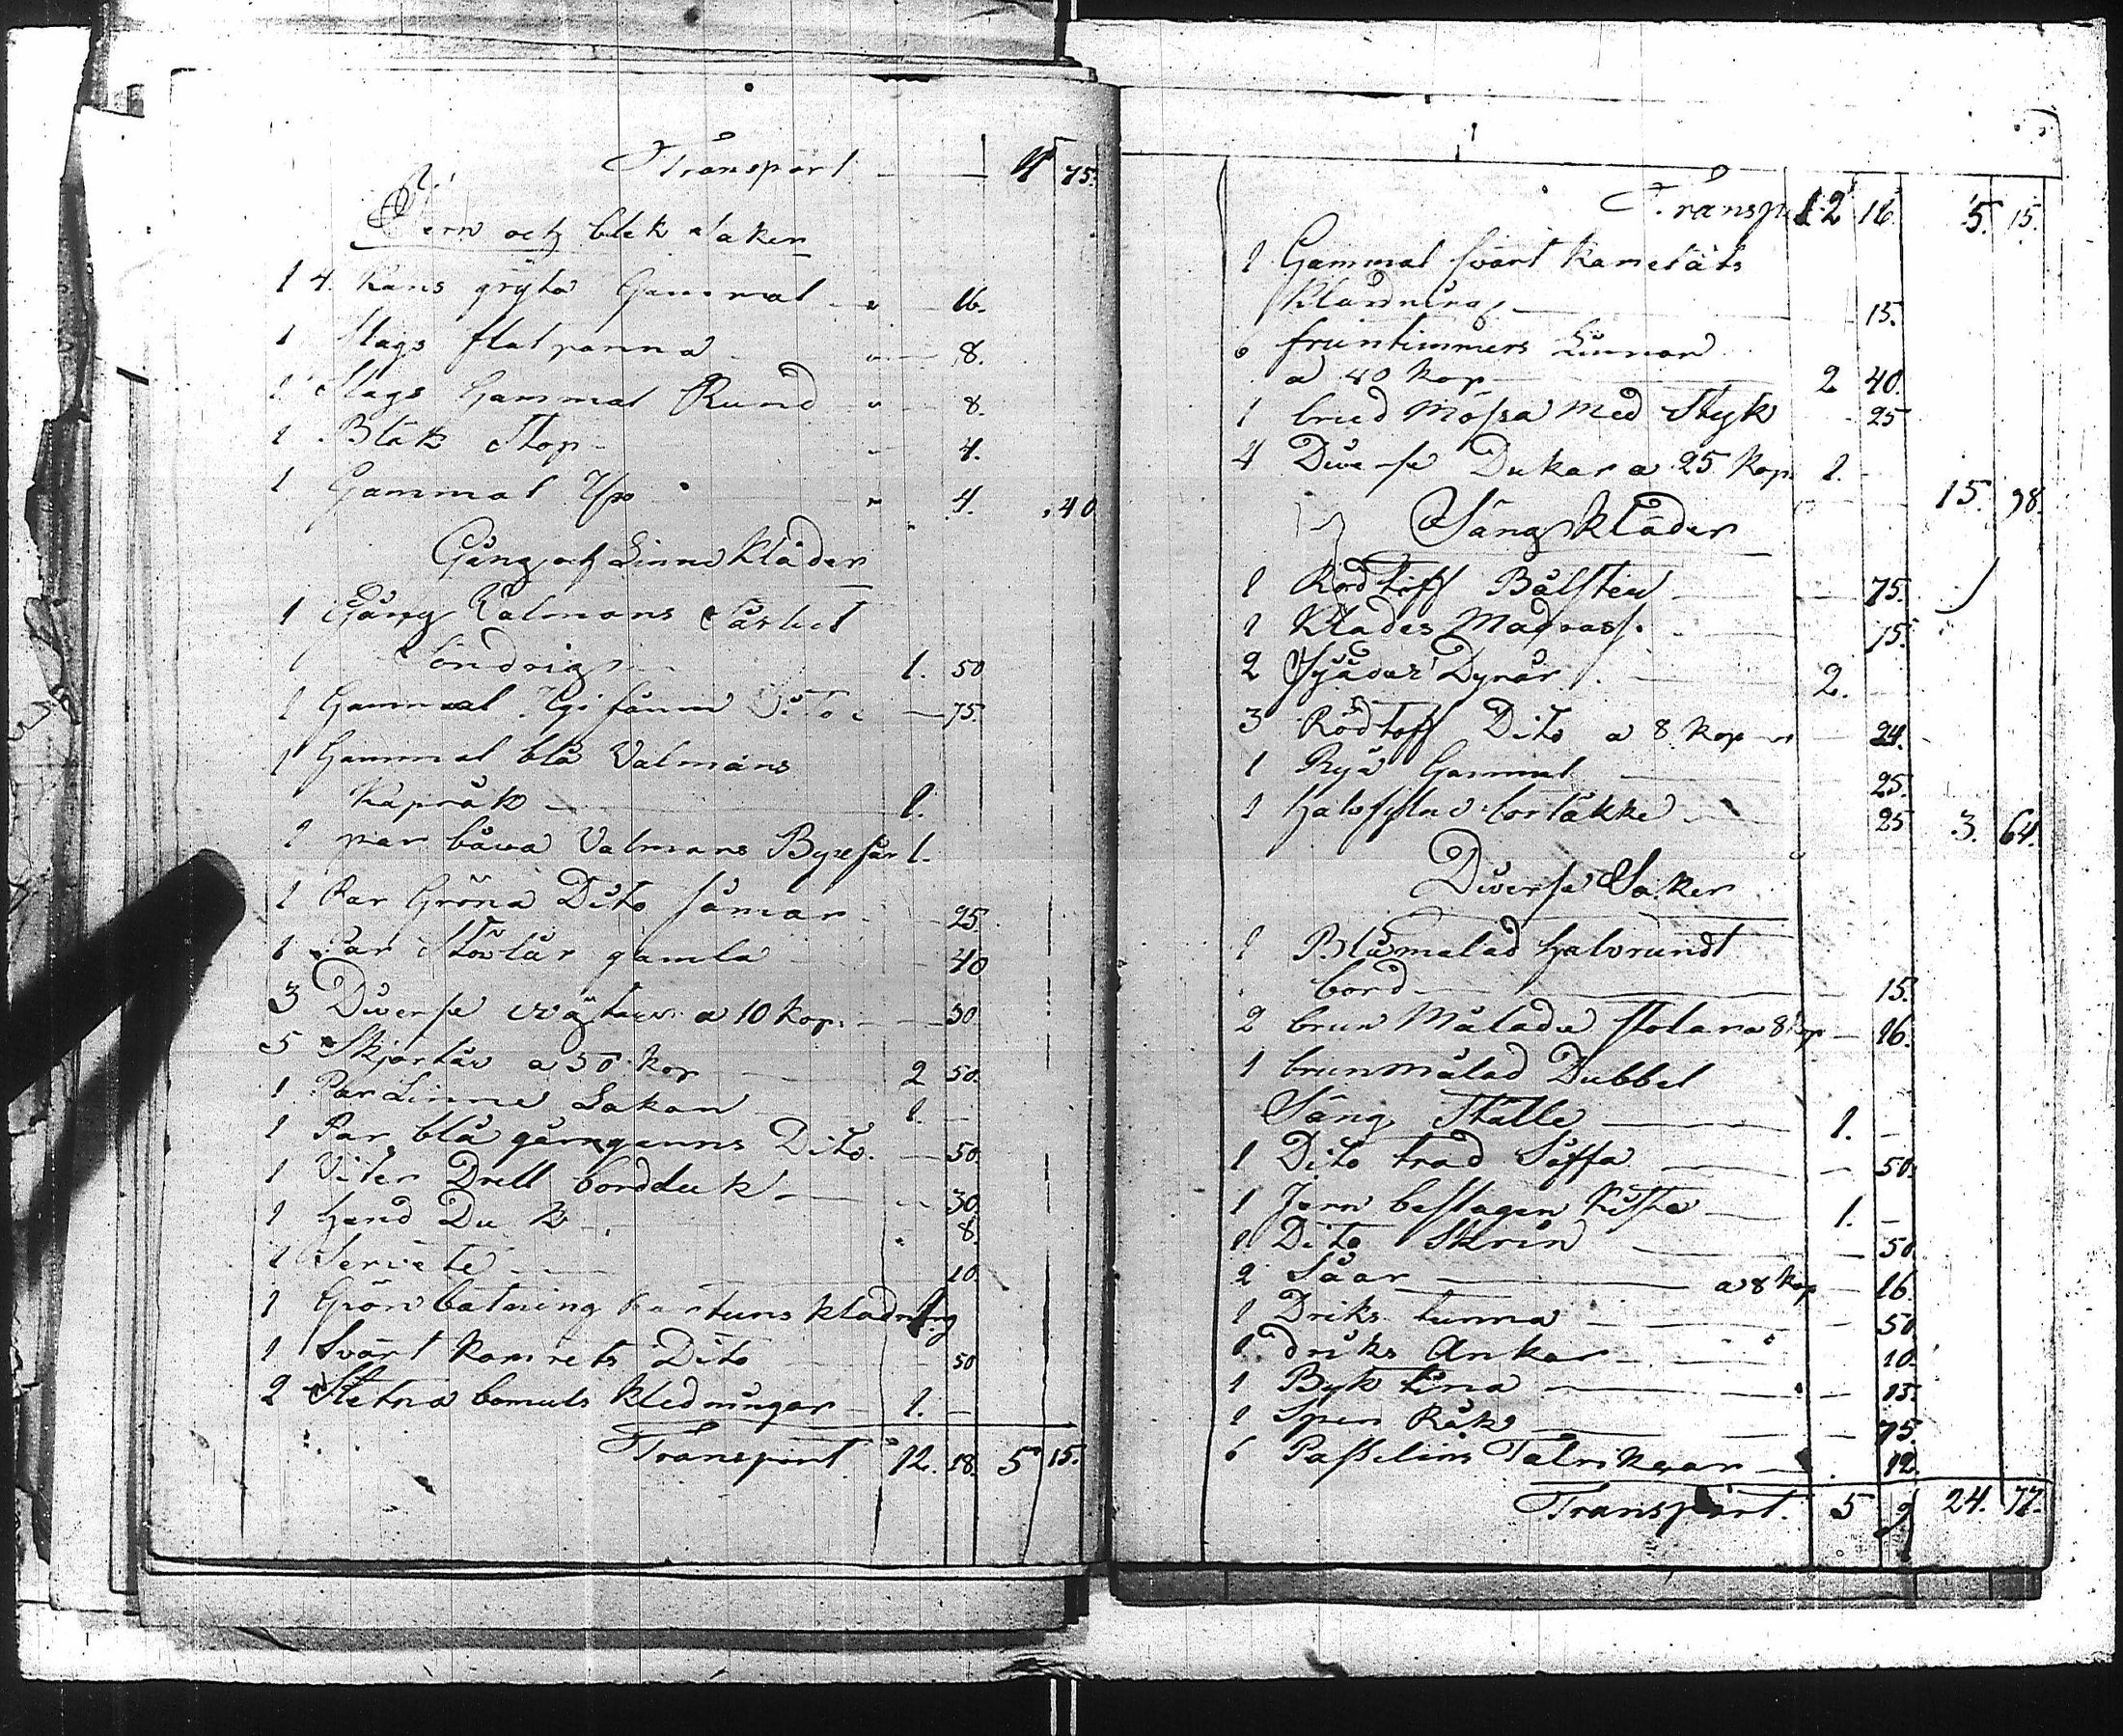 Transport 4 75.
Jern och blek Saker
1 4 Kans gryta Gammal " 16.
1 Slags flatpanna " 8.
1 Slags Gammal Rund " 8.
1 Bläk Stop " 4.
1 Gammal " 4. 40
Gång och Linne Kläder
1 Gång Valmans Sartut
Söndrig 1. 50
1 Gammal Dito 75.
1 Gammal blå Valmans
Kapråk 1.
1 par blåwa Valmans Byxesår 1.
1 Par Gröna Dito såmar 25.
1 Par Stövlar gamla 40
3 Diverse wästar a 10 kop. 30
5 Skjortar a 50 kop 2 50.
1 Par Linne Lakan 1. -
1 Par blå garngarns Dito. 50.
1 Viter Drell bordduk 30.
1 Hand Duk 8.
1 Serviete 10.
1 Grön batning kartuns kladning 1.
1 Svart Kamrets Dito 50
2 Sletna bomuls kledningar 1. -
Transport 12. 18. 5 15.
Transport 12 18. 5. 15.
1 Gammal svart Kamelåts
Klädning 15.
6 fruntimmers Linnan
a 40 kop 2 40.
1 bred Mössa med Styk 25
4 Diverse Dukar a 25 Kop. 1. -
15. 98.
Sängkläder
1 Rödtoff Bålsten 75.
1 Klades Madrass. 15.
2 Fjädar Dynår 2.
3 Rödtoff Dito a 8 kop 24.
1 Rya Gammal 25.
1 Halvsylne bortäkke 25 3. 64.
Diverse Saker
1 Blåmalad halvrundt
bord 15.
2 brun Målade stolar a 8 kop 16.
1 brunmålad Dubbel
Säng Ställe 1. -
1 Dito trad Soffa 50.
1 Jern beslagen Kista 1. -
1 Dito Skrin 50
2 Såar a 8 kop 16.
1 Driks tunna 50
1 driks Ankar 10.
1 Byk tina 15.
1 Spen Råk 75.
6 Passelins Talrikar 12.
Transport. 5 9 24. 77.